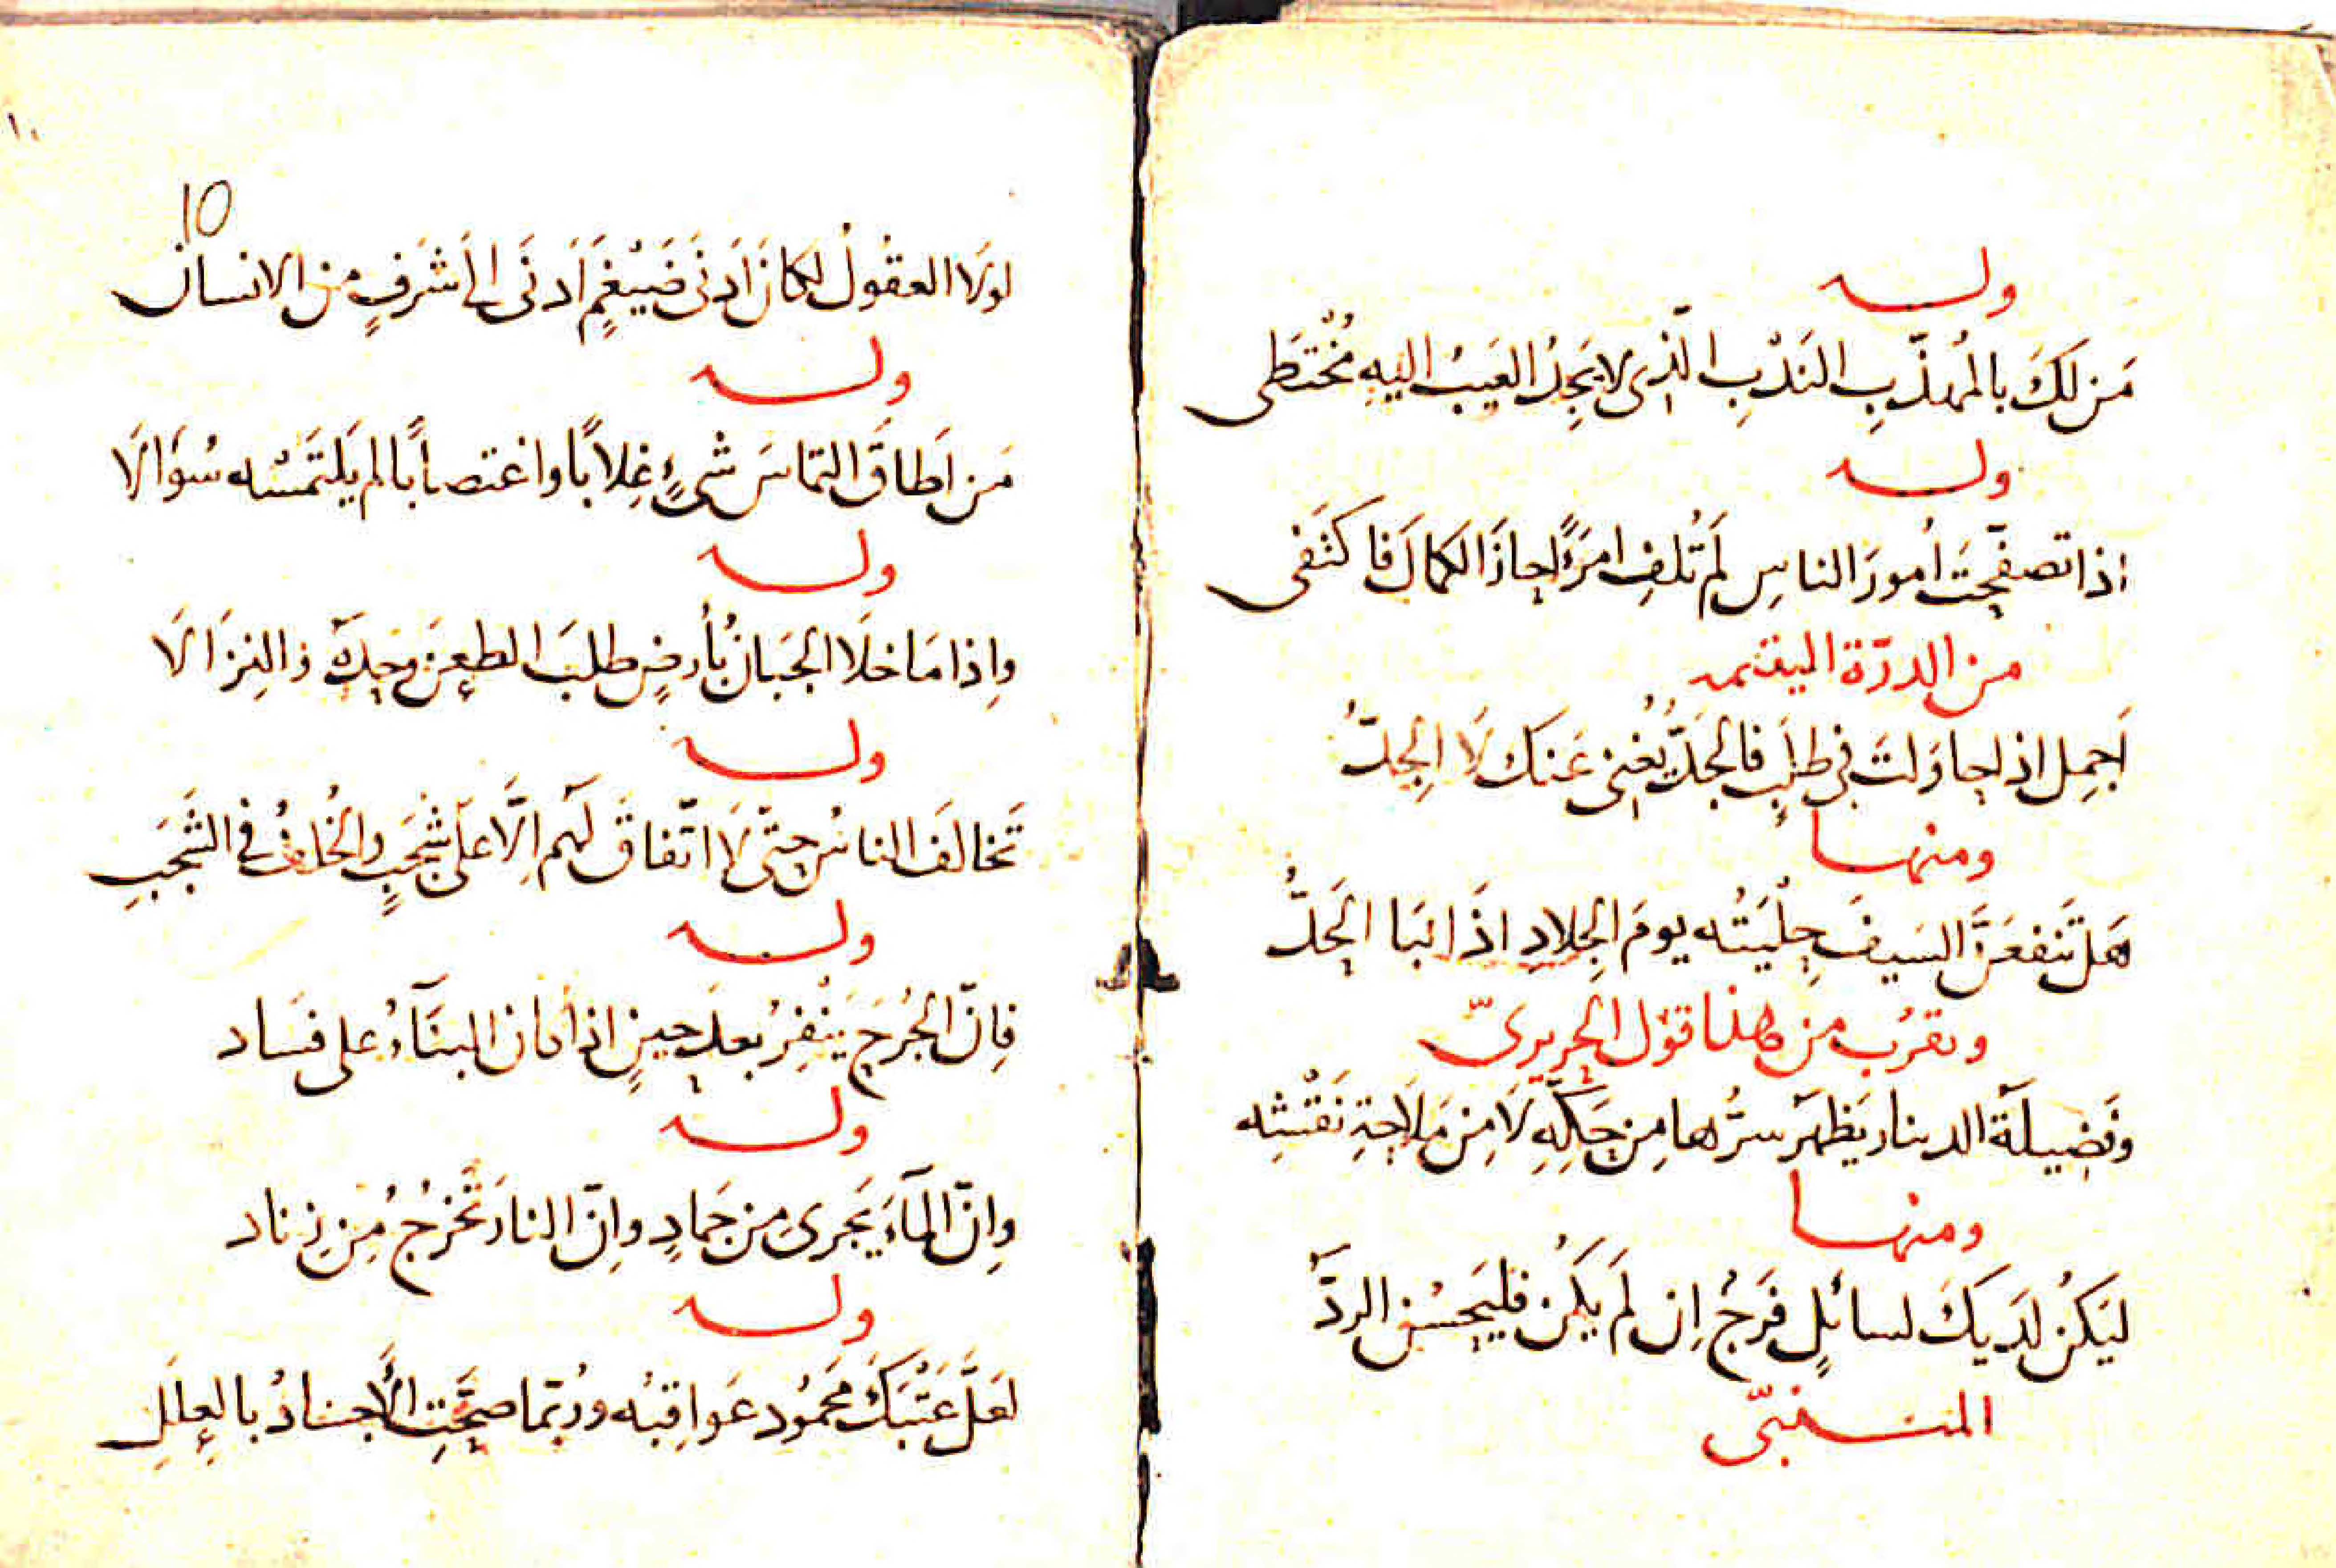 وله
مَن لَكَ بالمُهذَّبِ النَدْبِ الّذى لا يَجِدُ العَيبُ اليهِ مُخْتَطَى
وله
اذا تصفّحتَ أُمورَ الناسِ لَم تُلفِ امرَءًا حازَ الكمالَ فاكتَفى
من الدرّة اليتيمه
اَجمِل اذا حاوَلتَ فى طلَبٍ فالجَدُّ يُغنى عَنكَ لَا الجِدُّ
ومنها
هَل تَنفعَنَّ السَيفَ حِلْيَتُه يومَ الجِلادِ اذَا نَبَا الحَدُّ
ويقرُب من هذا قول الحريرىّ
وفَضِيلَة الدينار يَظهَر سرُّها مِن حَكِّهِ لَا مِن مَلَاحَةِ نَقْشِه
ومنها
ليَكُن لَدَيكَ لسائلٍ فَرَجٌ اِن لَم يَكُن فليَحسُنِ الردُّ
المتنبّى
١٠
10
لولَا العقُولُ لكانَ اَدنَى ضَيْغمٍ اَدنَى الى شَرَفٍ من الانسان
وله
مَن اَطاقَ التماسَ شىءٍ غِلابًا واغتصابًا لم يَلتَمسْه سُوَالَا
وله
واِذا مَا خلَا الجَبَانُ بأرضٍ طلبَ الطعنَ وحدَهُ والنِزَالَا
وله
تَخالَفَ الناسُ حتّى لَا اتّفاقَ لَهم اِلَّا عَلَى شَجَبٍ والخُلفُ فى الشَجَبِ
وله
فاِنّ الجُرحَ يَنْفِرُ بعدَ حينٍ اذا كان البنَآءُ على فسَاد
وله
واِنّ المآءَ يَجرى من جَمادٍ واِنّ النارَ تَخرُجُ مِن زِناد
وله
لعَلَّ عَتْبَكَ مَحمُود عَواقِبُه ورُبّما صحَّتِ الأَجسادُ بالعِلَلِ